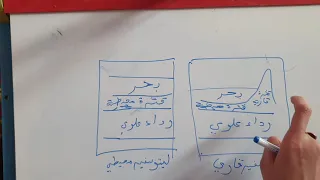 بحر
قشرة محيطية
رداء علوي
محيطي
قشرة
قارية
بحر
قشرة محيطية
رداء علوي
قاري